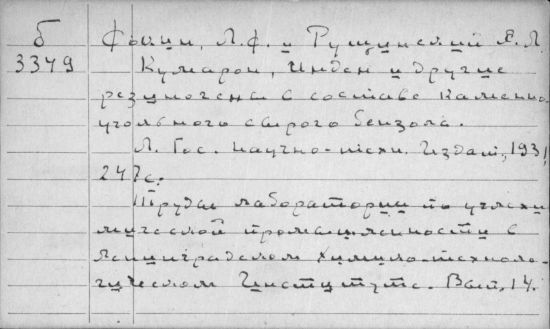 б Фокин, Л.Ф. и Рущинский Е.Л.
3379 Кумарон, Инден и другие
резиногена в составе каменно
угольного сырого бензола.
Л. Гос. научно-техн. Издат, 1931,
247с.
Труды лаборатории по углехи
мической промышленности в
Ленинградском Химико-техноло-
гическом Институте. Вып. 14.